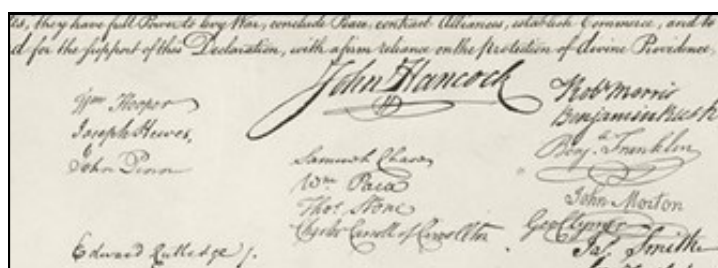 they have full Power to levy War, conclude Peace, contract Alliances, establish Commerce, and to
for the support of this Declaration, with a firm reliance on the Protection of divine Providence,
John Hancock
Wm Hooper
Joseph Hewes,
John Penn
Edward Rutledge
Samuel Chase
Wm. Paca
Thos. Stone
Charles Carroll of Carrollton
Robt Morris
Benjamin Rush
Benja. Franklin
John Morton
Geo Clymer
Jas. Smith